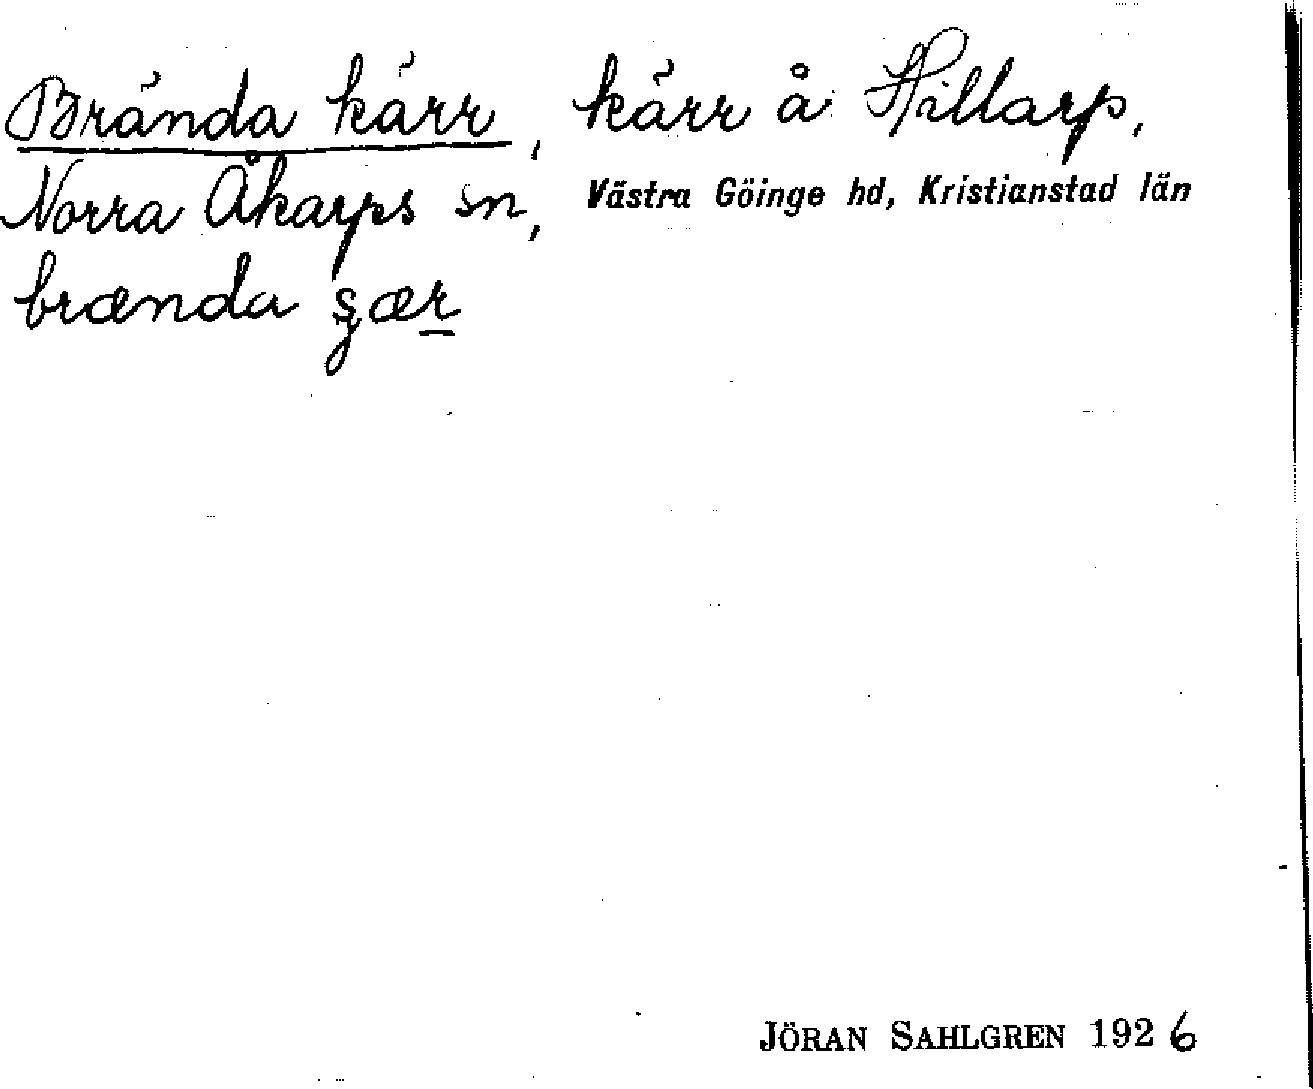 Brända kärr, kärr å Hillarp,
Norra Åkarps sn, Västra Göinge hd, Kristianstad län
brænda
JÖRAN SAHLGREN 1926